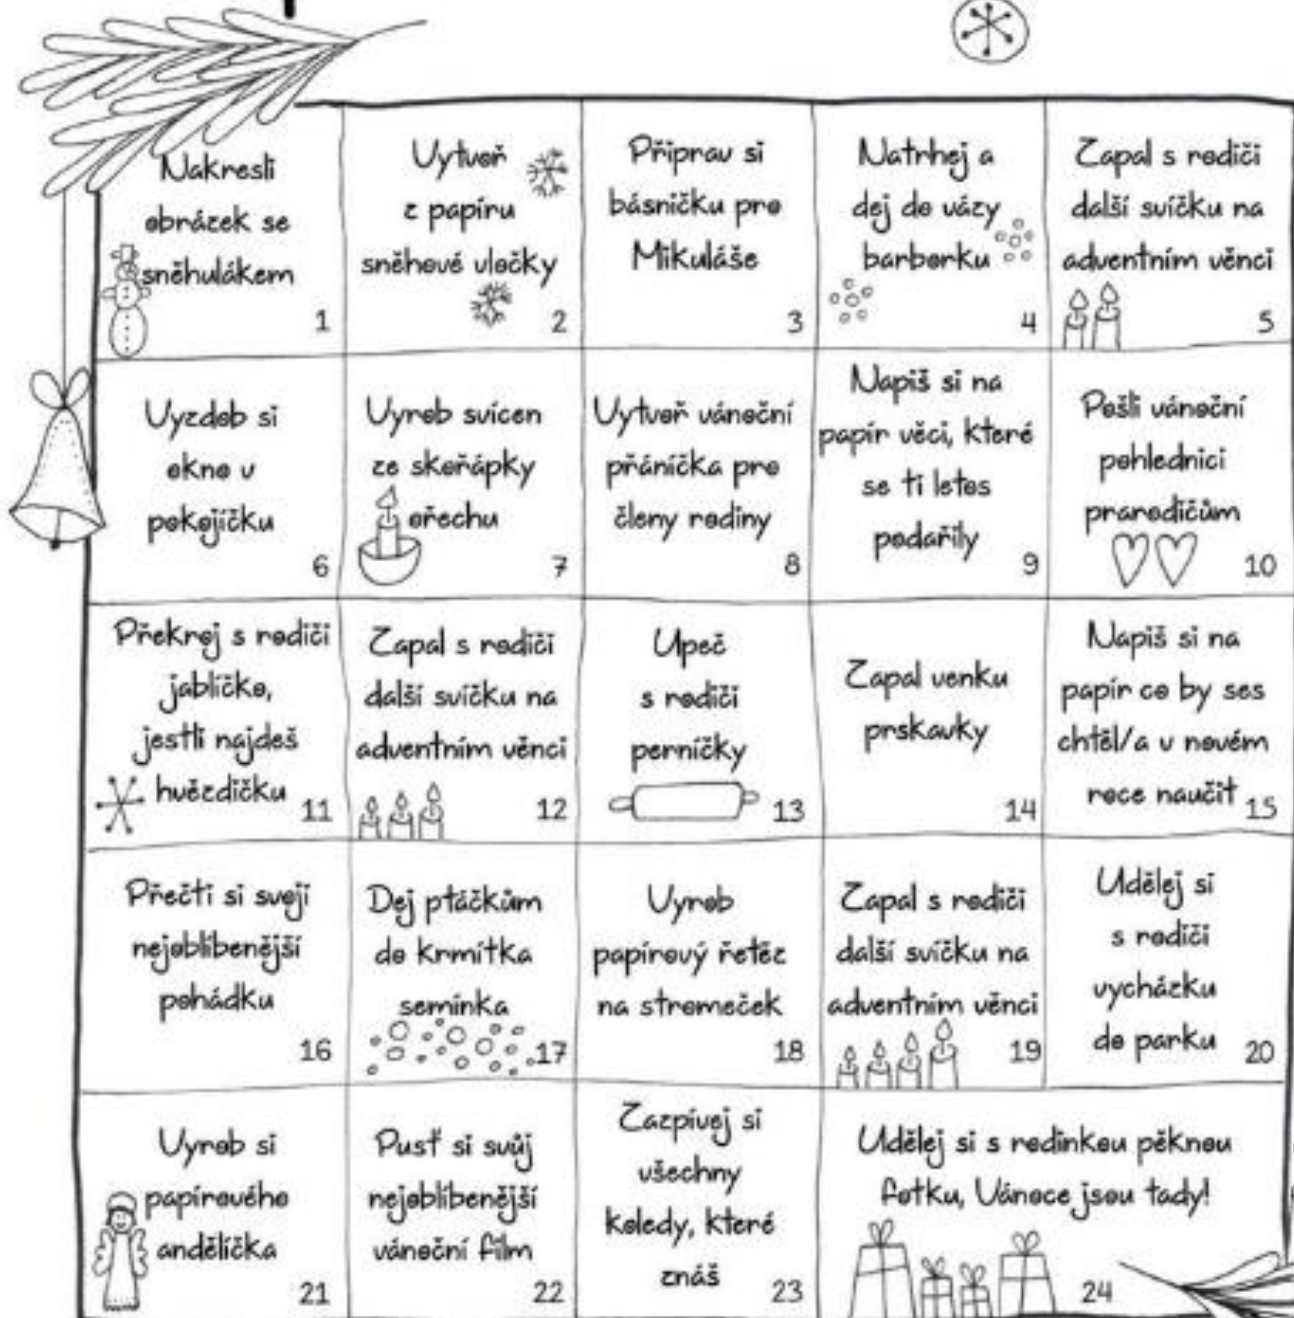 Nakresli
obrázek se
sněhulákem
1
Vytvoř
z papíru
sněhové vločky
2
Připrav si
básničku pro
Mikuláše
3
Natrhej a
dej do vázy
barborku
4
Zapal s rodiči
další svíčku na
adventním věnci
5
Vyzdob si
okno v
pokojíčku
6
Vyrob svícen
ze skořápky
ořechu
7
Vytvoř vánoční
přáníčka pro
členy rodiny
8
Napiš si na
papír věci, které
se ti letos
podařily
9
Pošli vánoční
pohlednici
prarodičům
10
Překroj s rodiči
jablíčko,
jestli najdeš
hvězdičku
11
Zapal s rodiči
další svíčku na
adventním věnci
12
Upeč
s rodiči
perníčky
13
Zapal venku
prskavky
14
Napiš si na
papír co by ses
chtěl/a v novém
roce naučit
15
Přečti si svoji
nejoblíbenější
pohádku
16
Dej ptáčkům
do krmítka
semínka
17
Vyrob
papírový řetěz
na stromeček
18
Zapal s rodiči
další svíčku na
adventním věnci
19
Udělej si
s rodiči
vycházku
do parku
20
Vyrob si
papírového
andělíčka
21
Pusť si svůj
nejoblíbenější
vánoční film
22
Zazpívej si
všechny
koledy, které
znáš
23
Udělej si s rodinkou pěknou
fotku, Vánoce jsou tady!
24